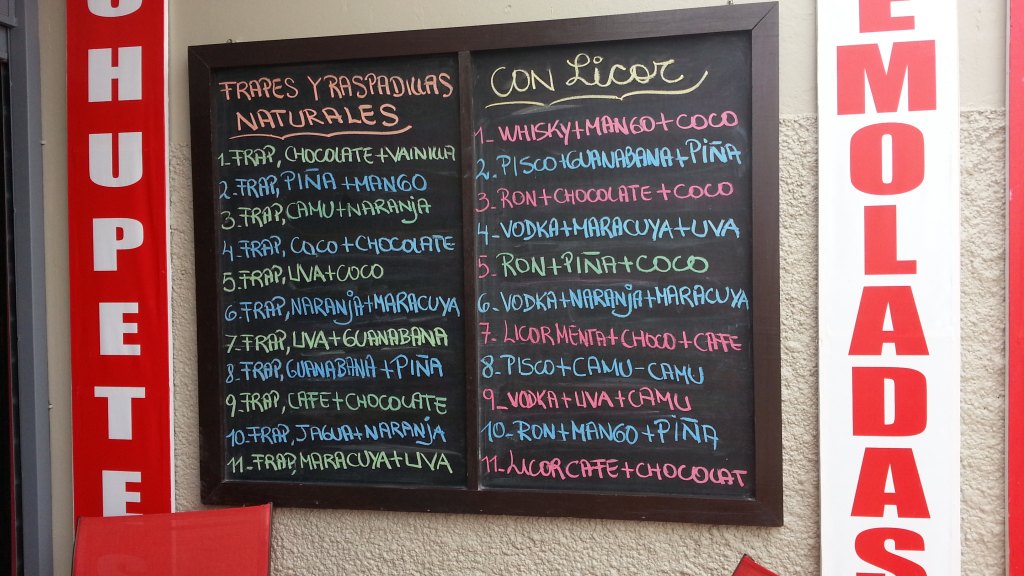 CHUPETE
FRAPES Y RASPADILLAS
NATURALES
1. FRAP, CHOCOLATE+VAINILLA
2. FRAP, PIÑA+MANGO
3. FRAP, CAMU+NARANJA
4. FRAP, COCO+CHOCOLATE
5. FRAP, UVA+COCO
6. FRAP, NARANJA+MARACUYA
7. FRAP, UVA+GUANABANA
8. FRAP, GUANABANA+PIÑA
9. FRAP, CAFE+CHOCOLATE
10. FRAP, JAGUA+NARANJA
11. FRAP, MARACUYA+UVA
CON LICOR
1. WHISKY+MANGO+COCO
2. PISCO+GUANABANA+PIÑA
3. RON+CHOCOLATE+COCO
4- VODKA+MARACUYA+UVA
5- RON+PIÑA+COCO
6- VODKA+NARANJA+MARACUYA
7- LICOR MENTA+CHOCO+CAFE
8- PISCO+CAMU-CAMU
9- VODKA+UVA+CAMU
10- RON+MANGO+PIÑA
11- LICOR CAFE+CHOCOLAT
EMOLADAS